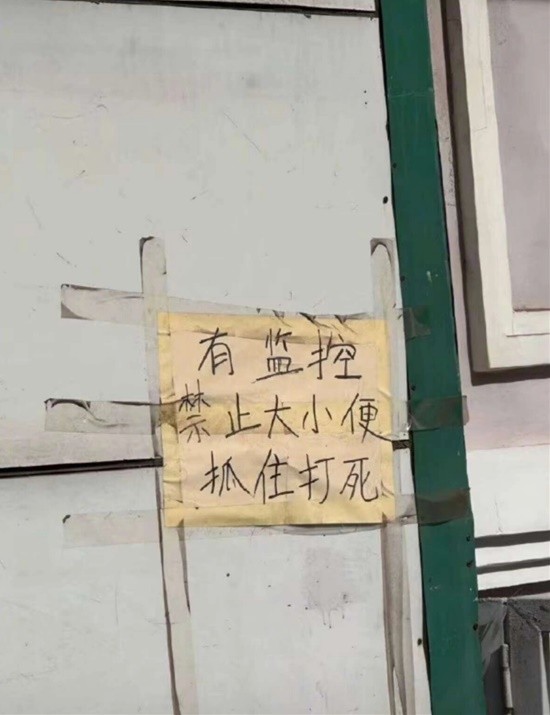 有监控
禁止大小便
抓住打死